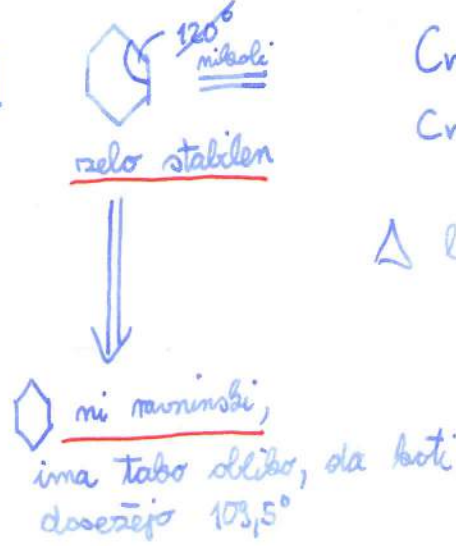 120°
nikoli
zelo stabilen
Cn
Cn
ni ravninski,
ima tako obliko, da koti
dosežejo 109,5°